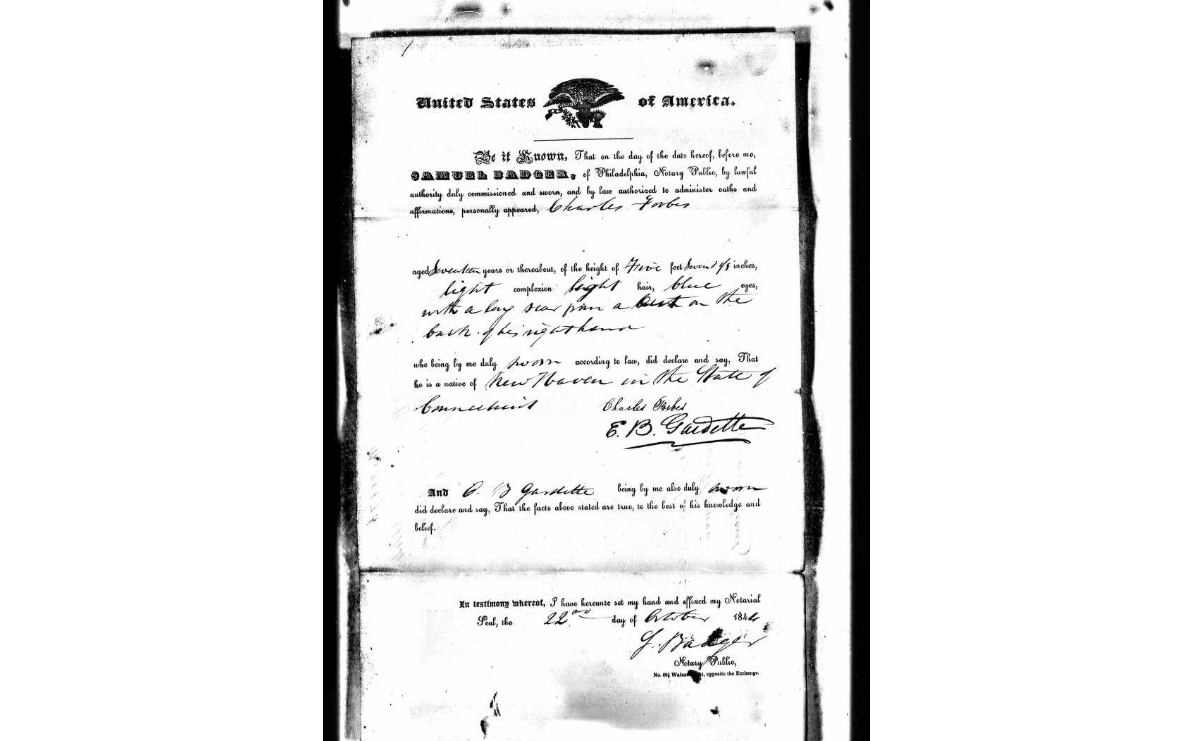 United States of America.
Be it Known, That on the day of the date hereof, before me,
SAMUEL BADGER, of Philadelphia, Notary Public, by lawful
authority duly commissioned and sworn, and by law authorized to administer oaths and
affirmations, personally appeared, Charles Forbes
aged Seventeen years or thereabout, of the height of Five feet Seven 1/8 inches,
light complexion light hair, blue eyes,
with a long scar from a Cut on the
back of his right hand
who being by me duly sworn according to law, did declare and say, That
he is a native of New Haven in the State of
Connecticut
Charles Forbes
E. B. Gardette
And E B Gardette being by me also duly sworn
did declare and say, That the facts above stated are true, to the best of his knowledge and
belief.
In testimony whereof, I have hereunto set my hand and affixed my Notarial
Seal, the 22nd day of October 1844
S. Badger
Notary Public,
opposite the Exchange.